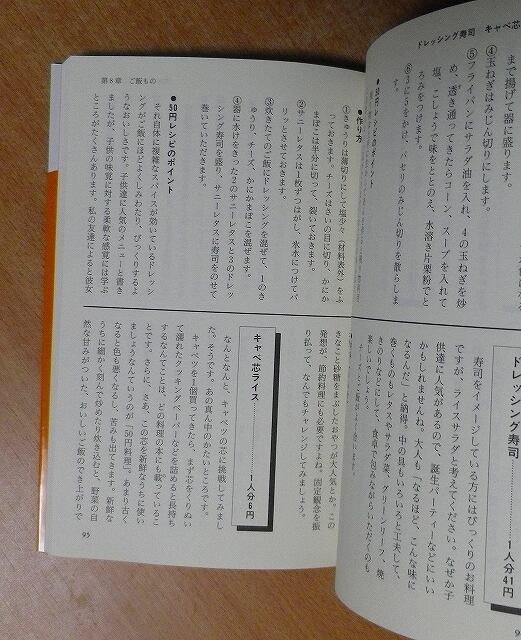 ドレッシング寿司　キャベ芯
まで揚げて器に盛ります。
④玉ねぎはみじん切りにします。
⑤フライパンにサラダ油を入れ、4の玉ねぎを炒
め、透き通ってきたらコーン、スープを入れて
塩、こしょうで味をととのえ、水溶き片栗粉でと
ろみをつけます。
⑥3に5をかけ、パセリのみじん切りを散らしま
す。
●50円レシピのポイント
ドレッシング寿司
1人分41円
寿司をイメージしている方にはびっくりのお料理
ですが、ライスサラダと考えてください。なぜか子
供達に人気があるので、誕生パーティーなどにいい
かもしれませんね。大人も「なるほど、こんな味に
なるんだ」と納得。中の具もいろいろと工夫して、
巻くものもレタスやサラダ菜、グリーンリーフ、焼
きのりなどにして、食卓で包みながらいただくのも
楽しいでしょう。
第8章　ご飯もの
●作り方
①きゅうりは薄切りにして塩少々（材料表外）をふ
っておきます。チーズはさいの目に切り、かにか
まぼこは半分に切って、裂いておきます。
②サニーレタスは1枚ずつはがし、氷水につけてパ
リッとさせておきます。
③炊きたてのご飯にドレッシングを混ぜて、1のき
ゅうり、チーズ、かにかまぼこを混ぜます。
④器に水けをきった2のサニーレタスと3のドレッ
シング寿司を盛り、サニーレタスに寿司をのせて
巻いていただきます。
●50円レシピのポイント
それ自体に複雑なスパイスが効いているドレッシ
ングがご飯にほどよくしみわたり、びっくりするよ
うなおいしさです。子供達に人気のメニューと書き
ましたが、子供の味覚に対する柔軟な感覚には学ぶ
ところがたくさんあります。私の友達によると彼女
きなこと砂糖をまぶしたおやつが大人気とか。この
発想が、節約料理にも必要ですよね。固定観念を振
り払って、なんでもチャレンジしてみましょう。
キャベ芯ライス
1人分6円
なんとなんと、キャベツの芯に挑戦してみまし
た。そうです。あの真ん中のかたいところです。
キャベツを1個買ってきたら、まず芯をくりぬい
て濡れたクッキングペーパーなどを詰めると長持ち
するなんてことは、どの料理の本にも載っているこ
とです。さらに、さあ、この芯を新鮮なうちに使い
ましょうなんていうのが「50円料理」。あまり古く
なると色も悪くなるし、苦みも出てきます。新鮮な
うちに細かく刻んで炒めたり炊き込むと、野菜の自
然な甘みがついた、おいしいご飯のでき上がりで
95